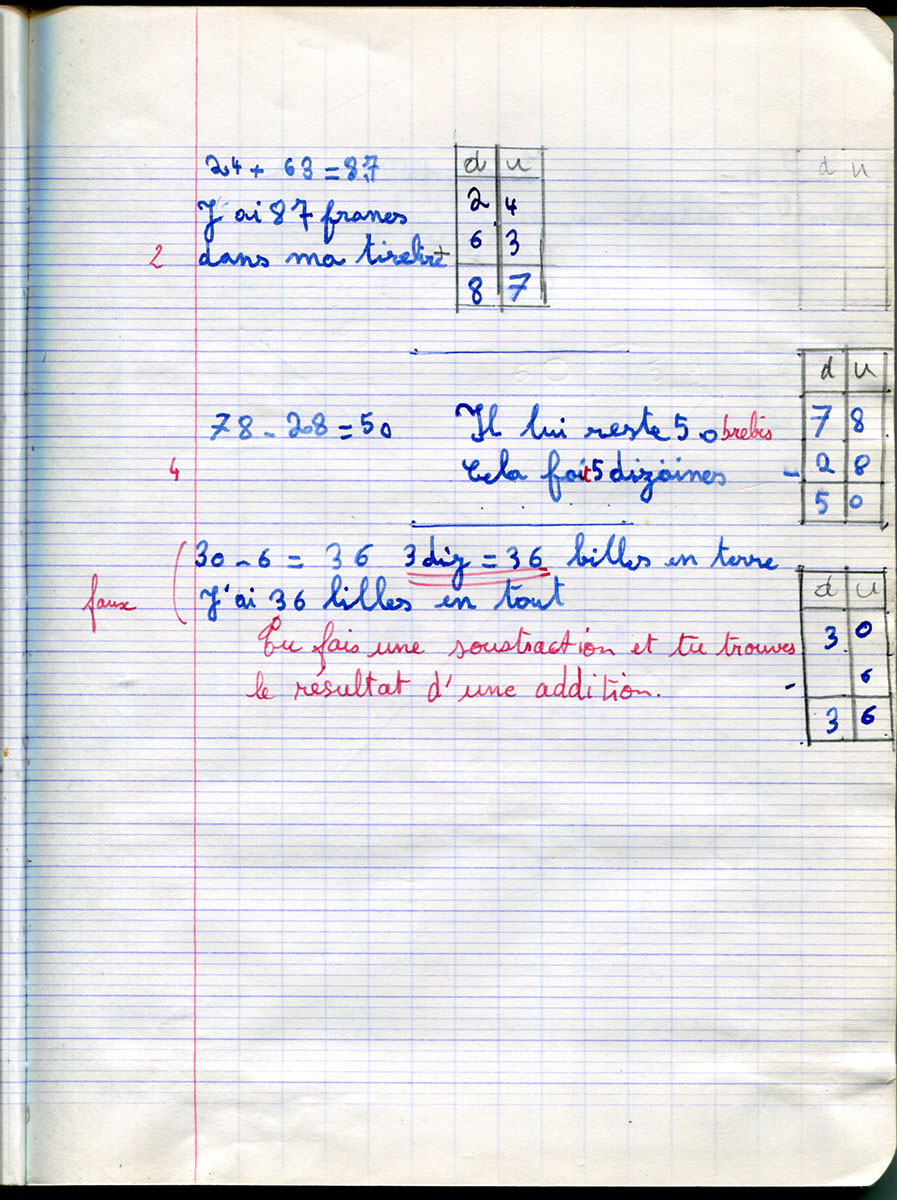 24 + 63 = 87
J'ai 87 francs
2 dans ma tirelire
d u
2 4
+ 6 3
8 7
d u
78 - 28 = 50 Il lui reste 50 brebis
4 Cela fait 5 dizaines
d u
7 8
- 2 8
5 0
30 - 6 = 36 3 diz = 36 billes en terre
faux J'ai 36 billes en tout
Tu fais une soustraction et tu trouves
le résultat d'une addition.
d u
3 0
- 6
3 6